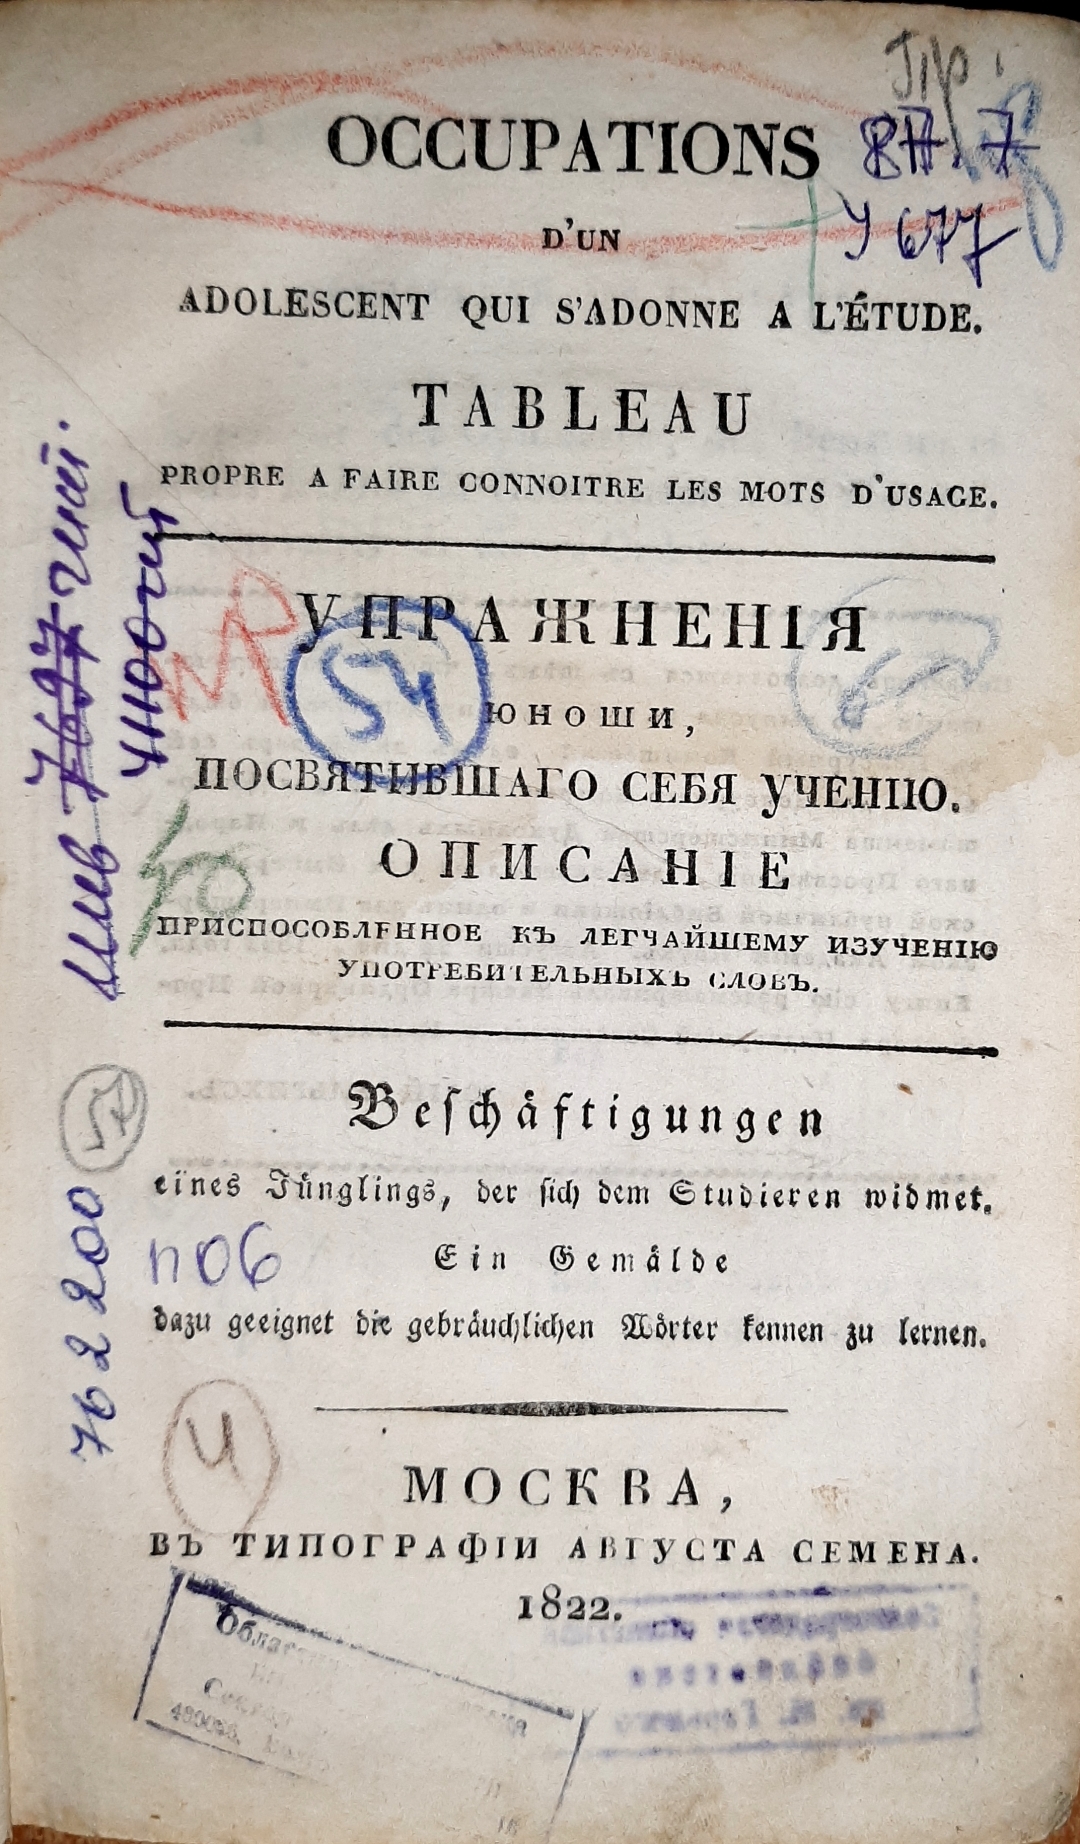 OCCUPATIONS
D'UN
ADOLESCENT QUI S'ADONNE A L'ÉTUDE.
TABLEAU
PROPRE A FAIRE CONNOITRE LES MOTS D'USAGE.
УПРАЖНЕНІЯ
ЮНОШИ,
ПОСВЯТИВШАГО СЕБЯ УЧЕНІЮ.
ОПИСАНІЕ
ПРИСПОСОБЛЕННОЕ КЪ ЛЕГЧАЙШЕМУ ИЗУЧЕНІЮ
УПОТРЕБИТЕЛЬНЫХЪ СЛОВЪ.
Beſchäftigungen
eines Jünglings, der ſich dem Studieren widmet.
Ein Gemälde
dazu geeignet die gebräuchlichen Wörter kennen zu lernen.
МОСКВА,
ВЪ ТИПОГРАФІИ АВГУСТА СЕМЕНА.
1822.
У 677
54
50
762200
п06
4